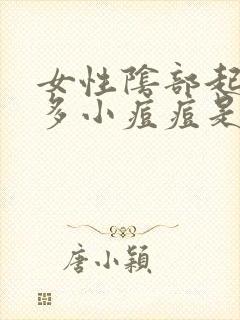 女性陰部起
多小痘痘是
唐小穎